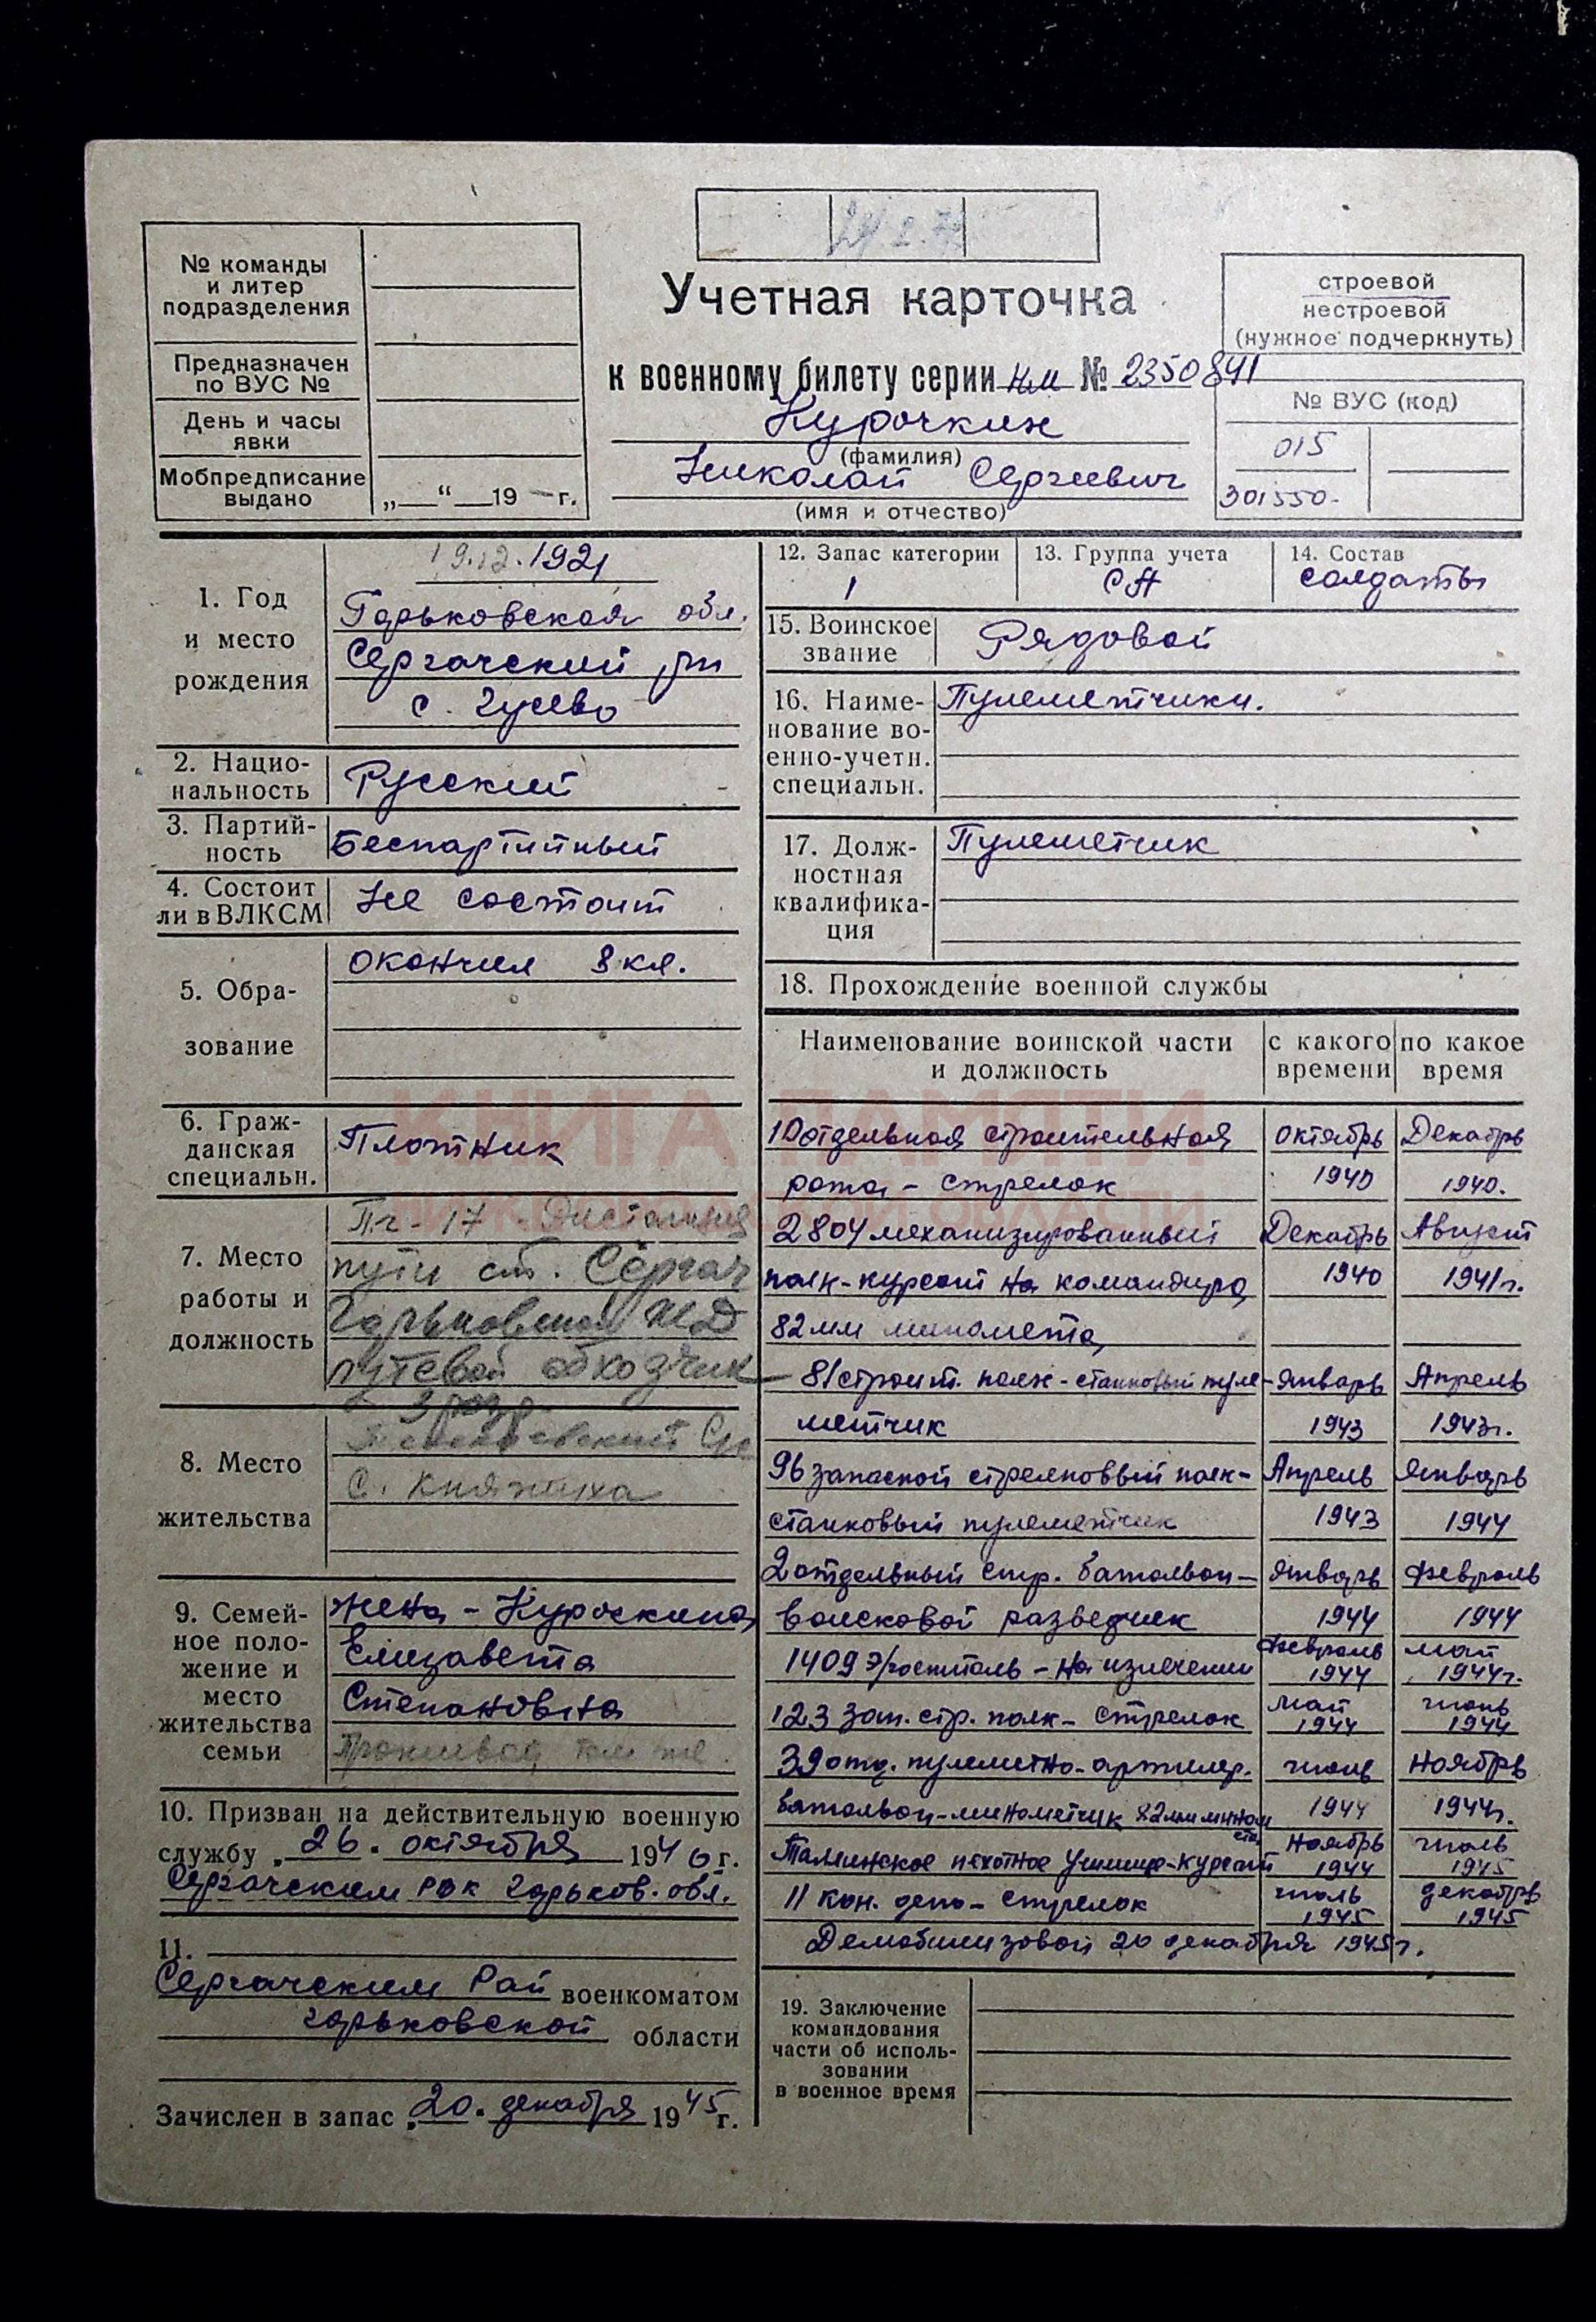 № команды
и литер
подразделения
Предназначен
по ВУС №
День и часы
явки
Мобпредписание
выдано
„ “ 19 г.
Учетная карточка
к военному билету серии НМ № 2350841
Курочкин
(фамилия)
Николай Сергеевич
(имя и отчество)
строевой
нестроевой
(нужное подчеркнуть)
№ ВУС (код)
015
301550-
1. Год
и место
рождения
19.12.1921
Горьковская обл.
Сергачский рн
с. Гусево
2. Нацио-
нальность
Русский
3. Партий-
ность
Беспартийный
4. Состоит
ли в ВЛКСМ
Не состоит
5. Обра-
зование
окончил 8 кл.
6. Граж-
данская
специальн.
Плотник
7. Место
работы и
должность
Пч-17 Дистанция
пути ст. Сергач
Горьковской ЖД
путевой обходчик
3 разр.
8. Место
жительства
с. Княжиха
9. Семей-
ное поло-
жение и
место
жительства
семьи
жена - Курочкина
Елизавета
Степановна
Проживает там же.
10. Призван на действительную военную
службу „26. октября 1940 г.
Сергачским РВК Горьков. обл.
11.
Сергачским Рай военкоматом
Горьковской области
Зачислен в запас „20. декабря 1945 г.
12. Запас категории
1
13. Группа учета
СА
14. Состав
солдаты
15. Воинское
звание
Рядовой
16. Наиме-
нование во-
енно-учетн.
специальн.
Пулеметчики.
17. Долж-
ностная
квалифика-
ция
Пулеметчик
18. Прохождение военной службы
Наименование воинской части
и должность
с какого
времени
по какое
время
КНИГА ПАМЯТИ
НИЖЕГОРОДСКОЙ ОБЛАСТИ
10 отдельная строительная октябрь Декабрь
рота - стрелок 1940 1940.
2804 механизированный Декабрь Август
полк-курсант на командира 1940 1941 г.
82 мм миномета
81 строит. полк - станковый пуле- январь Апрель
метчик 1943 1943 г.
96 запасной стрелковый полк- Апрель январь
станковый пулеметчик 1943 1944
2 отдельный стр. батальон- январь февраль
войсковой разведчик 1944 1944
1409 э/госпиталь - на излечении февраль 1944 май 1944 г.
123 зап. стр. полк - стрелок май 1944 июнь 1944
39 отд. пулеметно-артилер. июль Ноябрь
батальон-минометчик 82 мм мином 1944 1944 г.
пехотное училище-курсант Ноябрь 1944 июль 1945
11 кон. депо - стрелок июль 1945 декабрь 1945
Демобилизован 20 декабря 1945 г.
19. Заключение
командования
части об исполь-
зовании
в военное время